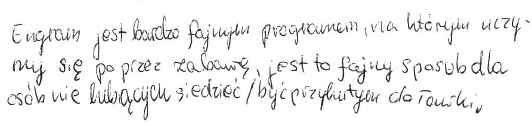 Engram jest bardzo fajnym programem, na którym uczy-
my się poprzez zabawę, jest to fajny sposób dla
osób nie lubiących siedzieć / być przybutym do ławki.